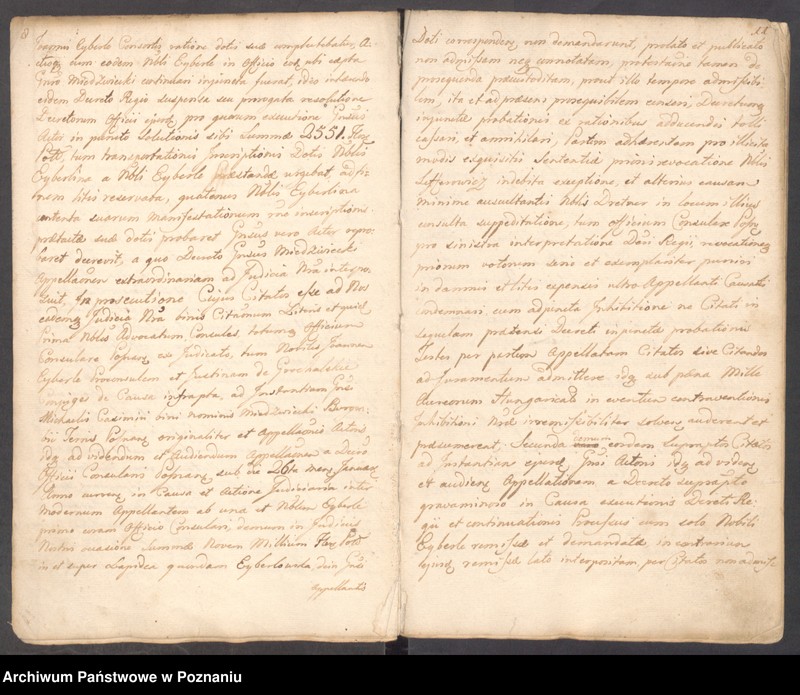 8
Joannis Eyberle Consortis ratione dotis suæ complectebatur, A-
ctioq cum eodem Nbli Eyberle in Officio eodem ubi capta
Gnro Miedzwiecki continuari injuncta fuerat, ideo intuendo
eidem Decreto Regio suspensa seu prorogata resolutione
Decretorum Officii ejusd. pro quorum executione Gnsus
Actor in puncto Solutionis sibi Summæ 2551. Flor
Poll, tum transportationis Inscriptionis Dotis Nblis
Eyberlina a Nbli Eyberle præstandæ urgebat, ad fi-
nem litis reservata, quatenus Nblis Eyberliova
contenta suarum Manifestationum ræ inscriptionis
præstitæ suæ dotis probaret Gnsus vero Actor repro-
baret decrevit, a quo Decreto Gnsus Miedzwiecki
Appellaõem extraordinariam ad Judicia Nra interpo-
suit, In prosecutione Cujus Citatos esse ad Nos
eademq Judicia Nra binis Citaõnum Literis et quid
Prima Nbles Advocatum, Consules totumq Officium
Consulare Posnan ex Judicato, tum Nobiles Joannem
Eyberle Proconsulem et Justinam de Grochalskie
Conjuges de Causa infrapta, ad Instantiam Gnsi
Michaelis Casimiri bini nominis Miedzwiecki Burgra-
bii Terris Posnan originaliter et Appellaõnis Actoris
idq ad videndum et Audiendum Appellaõnem a Decreto
Officii Consularis Posnan, sub die 26ta mens Januar
Anno currenti in Causa et Actione Judiciaria inter
modernum Appellantem ab una et Nblem Eyberle
primo coram Officio Consulari, demum in Judiciis
Nostris occasione Summæ Novem Millium Flor Poll
in et super Lapidea quondam Eyberlowska dein Gnsi
Appellantis
Doti correspondere non demandarunt, prolato et publicato
non admissam neq annotatam, protestaõne tamen de
prosequenda præcustoditam, prout illo tempore admissibi-
lem, ita et ad præsens prosequibilem censeri, Decretumq
injunctæ probationis ex rationibus adducendis tolli
cassari, et annihilari, Partem adhærentem pro illicita
modis exquisitis sententiæ prioris revocatione Nbli
indebita exceptione, et alterius causam
minime auscultantis Nblis Dretner in locum illius
consulta suppeditatione, tum Officium Consulare Posn
pro sinistra interpretatione Dcri Regii, revocationeq
priorum votorum serio et exemplariter puniri
in damnis et litis expensis ultro Appellanti Causatis
condemnari cum adjuncta Inhibitione ne Citati in
sequelam prætensi Decreti injunctæ probationis
Testes per partem Appellatam Citatos sive Citandos
ad Juramentum admittere idq sub pæna Mille
Aureorum Hungarical in eventum contraventionis
Inhibitioni Nræ irremissibiliter solven auderent et
præsumerent, Secunda eorundem Supraptos Citatos
ad Instantiam ejusd Gnsi Actoris idq ad viden
et audien Appellationem a Decreto suprapto
gravaminoso in Causa executionis Decreti Re-
gii et continuationis Processus cum solo Nobili
Eyberle remissæ et demandatæ, in contrarium
ejusq remissæ lato interpositam, per Citatos non admiss
Archiwum Państwowe w Poznaniu